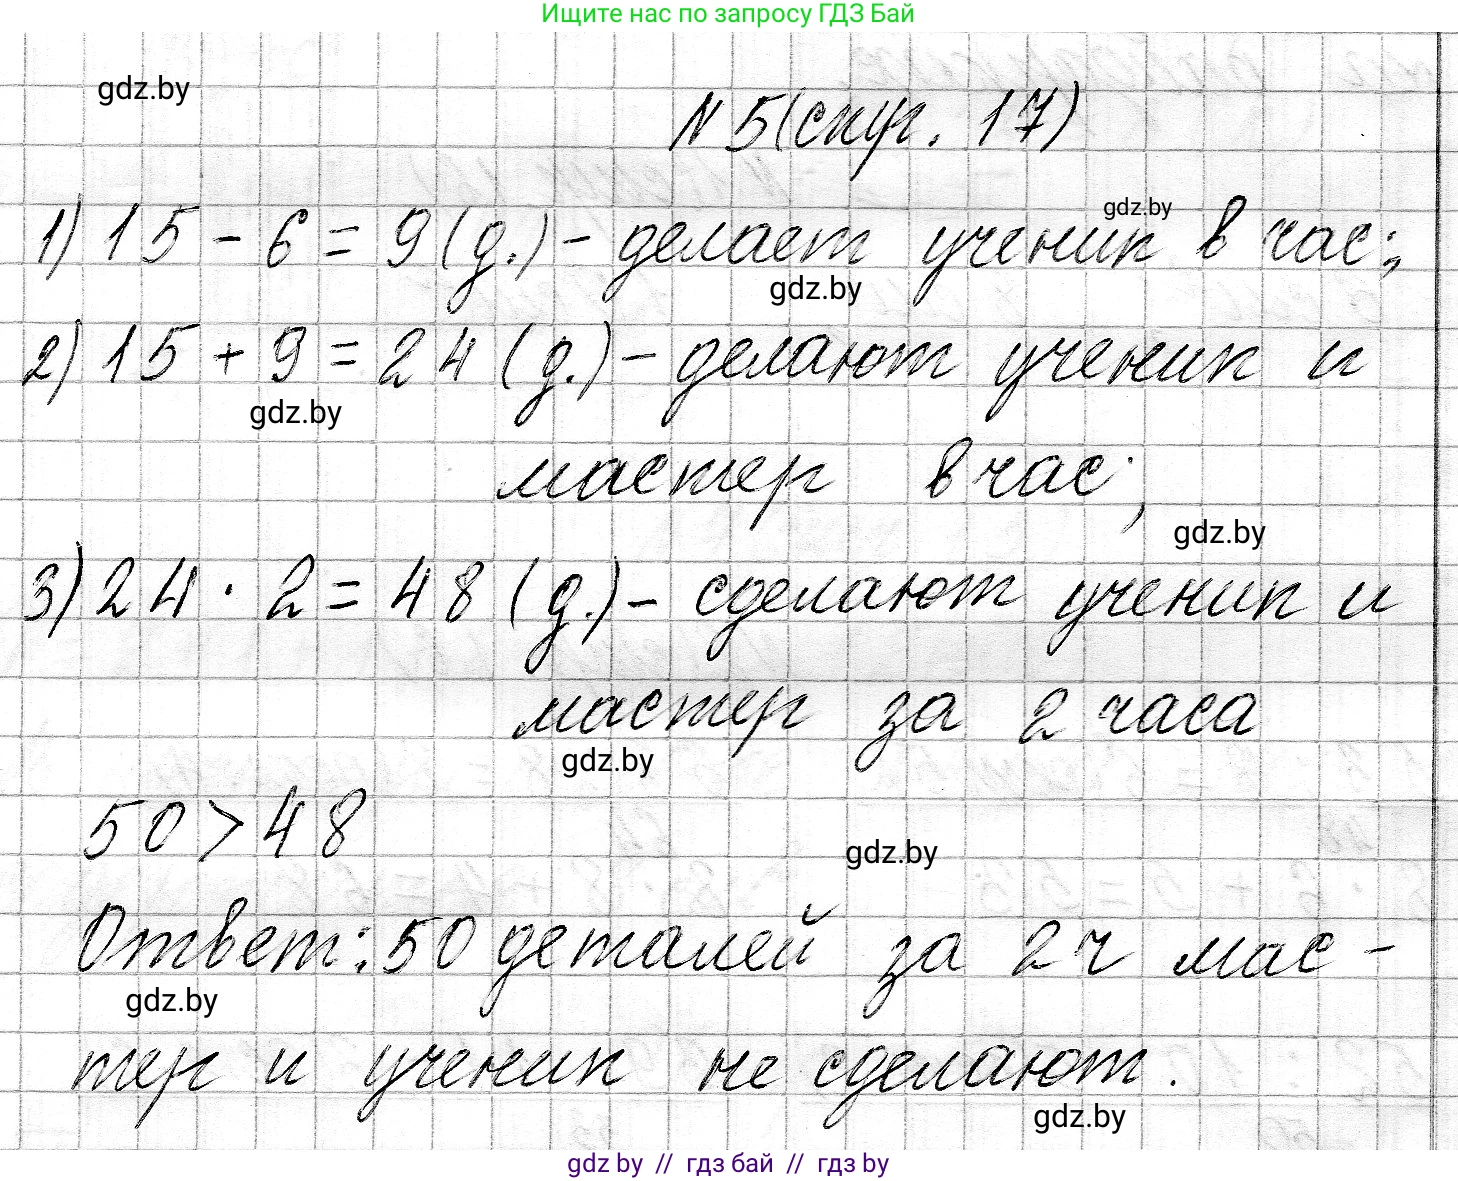 Ищите нас по запросу ГДЗ Бай
gdz.by
№ 5 (стр. 17)
1) 15 - 6 = 9 (д.) - делает ученик в час;
gdz.by
gdz.by
2) 15 + 9 = 24 (д.) - делают ученик и
gdz.by
мастер в час;
gdz.by
3) 24 · 2 = 48 (д.) - сделают ученик и
мастер за 2 часа
gdz.by
50 > 48
gdz.by
Ответ: 50 деталей за 2 ч мас-
gdz.by
тер и ученик не сделают.
gdz.by
gdz by // гдз бай // гдз by